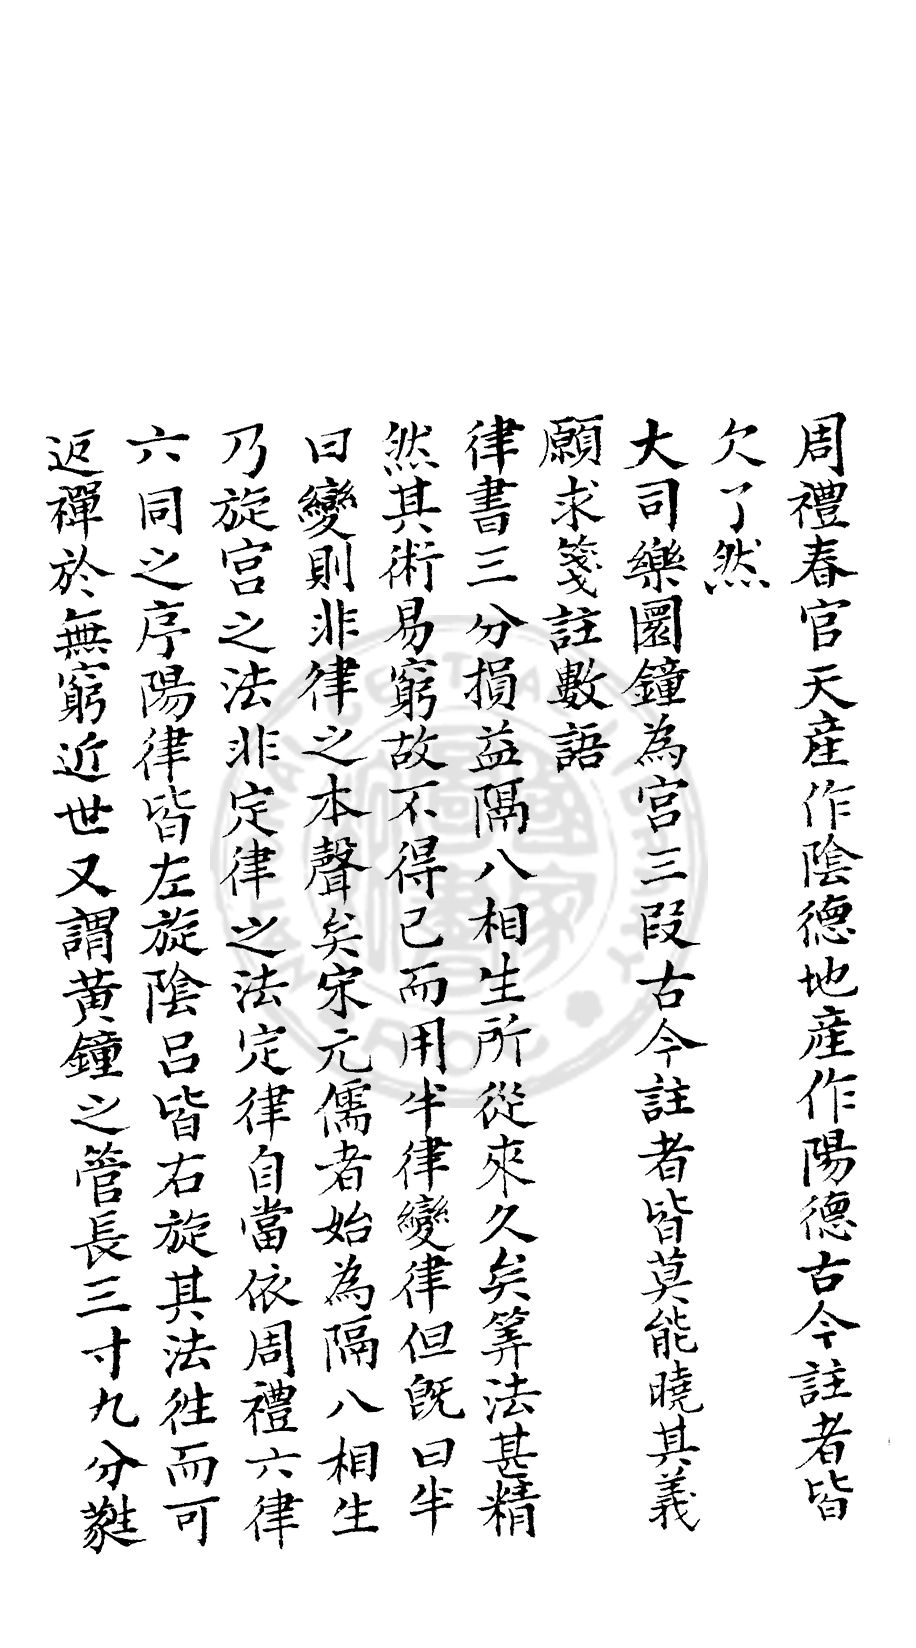 周禮春官天産作陰德地産作陽德古今註者皆
欠了然
大司樂圜鐘為宮三段古今註者皆莫能曉其義
願求箋註數語
律書三分損益隔八相生所從來久矣筭法甚精
然其術易窮故不得已而用半律變律但旣曰半
曰變則非律之本聲矣宋元儒者始為隔八相生
乃旋宮之法非定律之法定律自當依周禮六律
六同之序陽律皆左旋陰呂皆右旋其法徃而可
返禪於無窮近世又謂黃鐘之管長三寸九分蕤